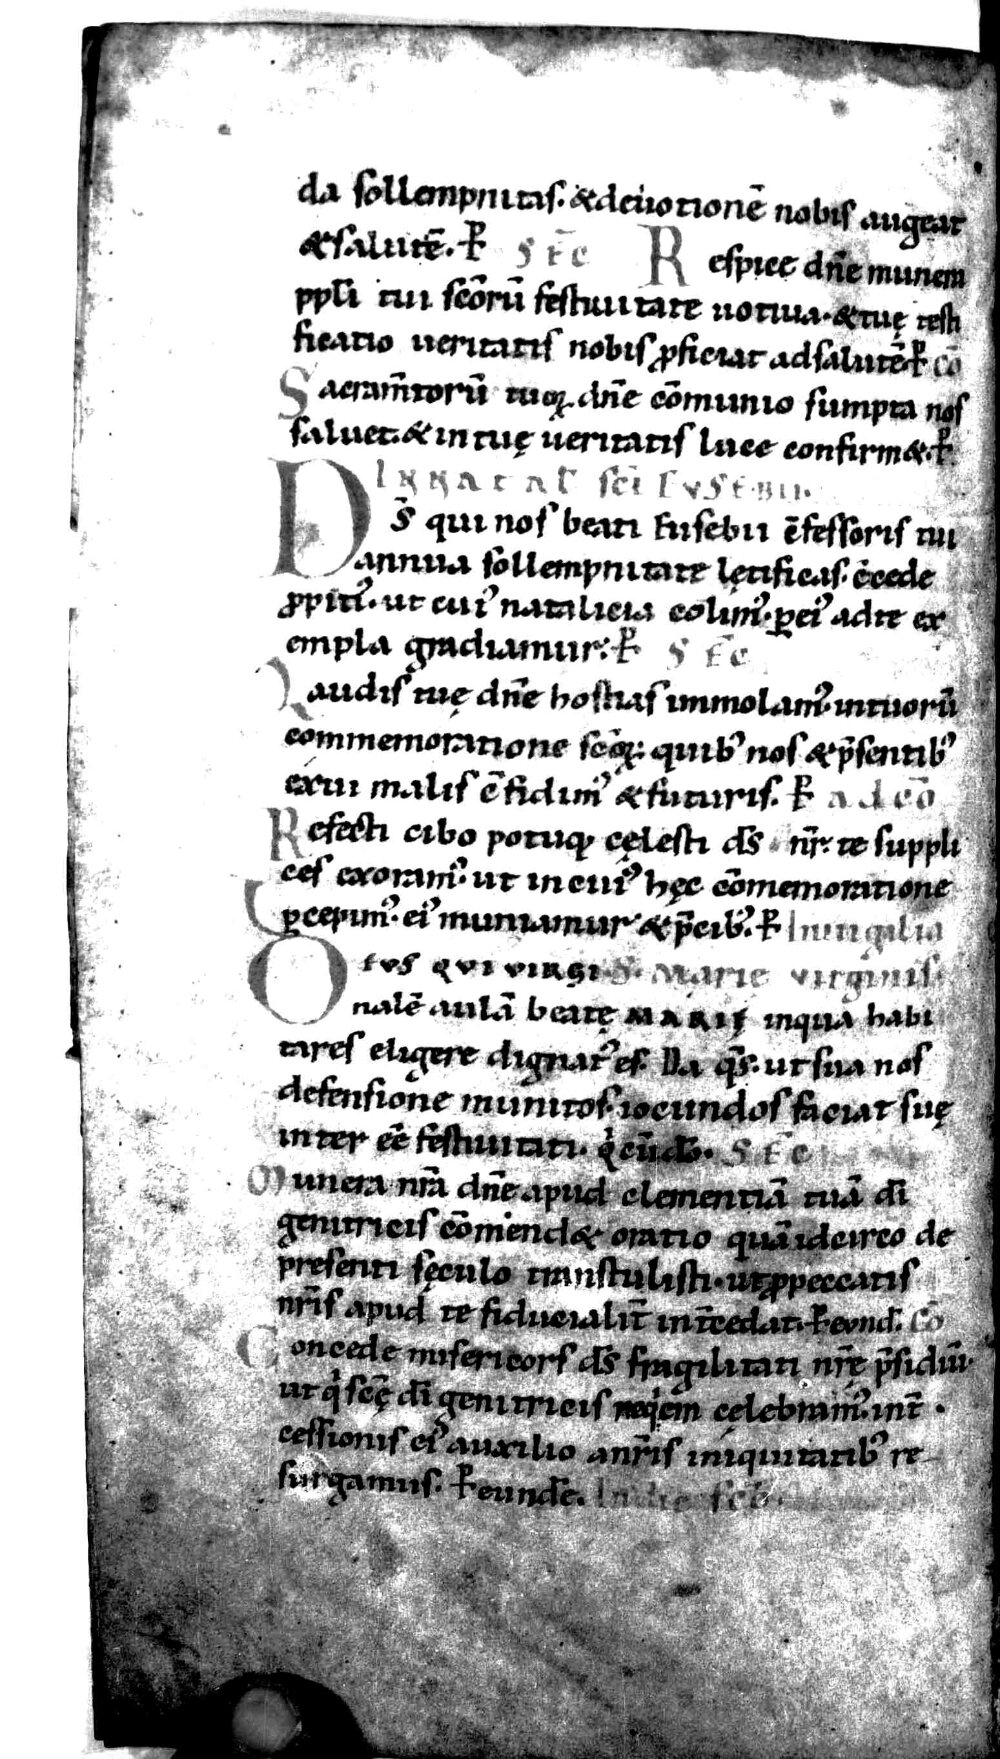 da sollempnitas. & deuotionē nobis augeat
& salutē. P̱ SEC Respice dn̄e munem
pp̄li tui sc̄orū festiuitate uotiua. & tuę testi
ficatio ueritatis nobis ꝓficiat ad salutē. P̱ Cō
Sacram̄torū tuoꝝ dn̄e cōmunio sumpta nos
saluet. & in tuę ueritatis luce confirm&. P̱
IN NAT AL sc̄i EVSEBII.
Ds̄ qui nos beati Eusebii c̄fessoris tui
annua sollempnitate lętificas. c̄cede
ꝓpitiꝰ. ut cuiꝰ natalicia colimꝰ. ꝑ eiꝰ ad te ex
empla gradiamur. P̱ SEC
Laudis tuę dn̄e hostias immolamꝰ. in tuorū
commemoratione sc̄oꝝ. quibꝰ nos & p̄sentibꝰ
exui malis c̄fidimꝰ & futuris. P̱ ad cō
Refecti cibo potuq; cęlesti ds̄ nr̄. te suppli
ces exoramꝰ. ut in cuiꝰ hęc cōmemoratione
ꝑcepimꝰ. eiꝰ muniamur & p̄cibꝰ. P̱ In uigilia
OĪPTS QVI VIRGI S. Marie virginis.
nalē aulā beatę MARIĘ in qua habi
tares eligere dignatꝰ es. Da qs̄. ut sua nos
defensione munitos. iocundos faciat suę
inter eē festiuitati. q̇ cū do. SEC
Munera nr̄a dn̄e apud clementiā tuā dī
genitricis cōmend& oratio quā idcirco de
presenti sęculo transtulisti. ut ꝓ peccatis
nr̄is apud te fiducialit̄ int̄cedat. P̱ eund. Cō
Concede misericors ds̄ fragilitati nr̄ę p̄sidiū.
ut q̇ sc̄ę dī genitricis requiem cęlebramꝰ. int̄
cessionis eiꝰ auxilio a nr̄is iniquitatibꝰ re
surgamus. P̱ eundē. In die